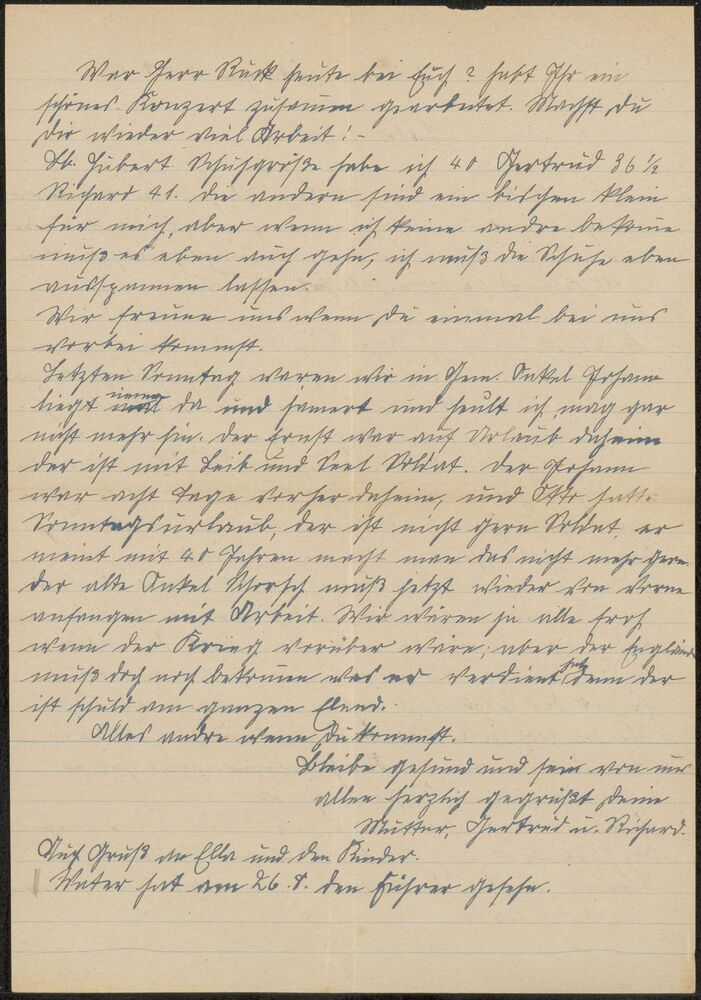 War Herr Rückt heute bei Euch? habt Ihr ein
schönes Konzert zusammen gearbeitet. Machst Du
Dir wieder viel Arbeit! -
Lb. Hubert. Schuhgröße habe ich 40 Gertrud 36 ½
Richard 41. die andern sind ein bischen klein
für mich, aber wenn ich keine andre bekome
muß es eben auch gehn, ich muß die Schuhe eben
ausspannen lassen.
Wir freuen uns wenn Du einmal bei uns
vorbei kommst.
Letzten Sonntag waren wir in Gem. Onkel Johann
liegt immer da und jamert und heult ich mag gar
nicht mehr hin. der Ernst war auf Urlaub daheim
der ist mit Leib und Seel Soldat. der Johann
war acht Tage vorher daheim, und Otto hatte
Sonntagsurlaub, der ist nicht gern Soldat, er
meint mit 40 Jahren macht man das nicht mehr gern.
der alte Onkel Schorsch muß jetzt wieder von vorne
anfangen mit Arbeit. Wir wären ja alle froh
wenn der Krieg vorüber wäre; aber der Engländ
muß doch noch bekommen was er verdient hat, denn der
ist schuld am ganzen Elend.
Alles andre wenn Du kommst.
Bleibe gesund und sein von uns
allen herzlich gegrüßt Deine
Mutter, Gertrud u. Richard.
Auch Gruß an Ella und den Kinder.
Vater hat am 26.8. den Führer gesehn.